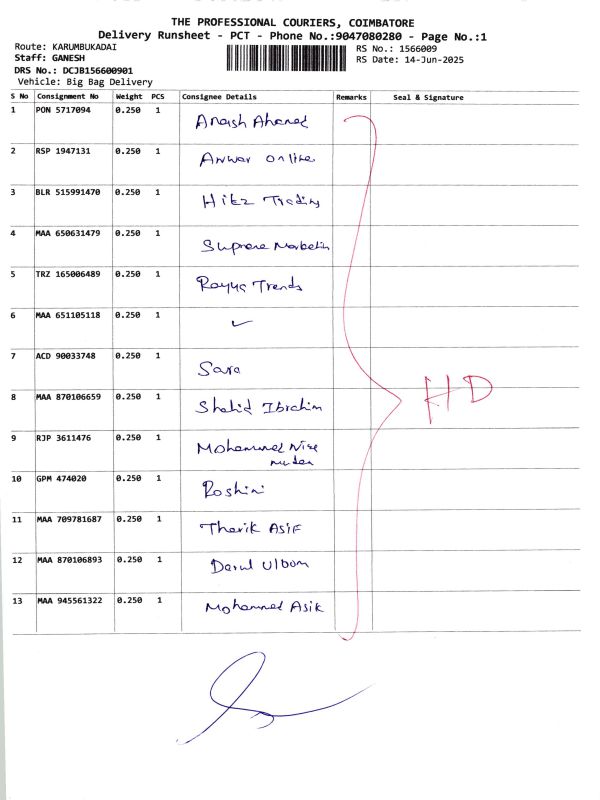 THE PROFESSIONAL COURIERS, COIMBATORE
Delivery Runsheet - PCT - Phone No.:9047080280 - Page No.:1
Route: KARUMBUKADAI RS No.: 1566009
Staff: GANESH RS Date: 14-Jun-2025
DRS No.: DCJB156600901
Vehicle: Big Bag Delivery
S No Consignment No Weight PCS Consignee Details Remarks Seal & Signature
1 PON 5717094 0.250 1 Ahamed
2 RSP 1947131 0.250 1 Anwar online
3 BLR 515991470 0.250 1 Hitz Trading
4 MAA 650631479 0.250 1 Supreme
5 TRZ 165006489 0.250 1 Trends
6 MAA 651105118 0.250 1 ✓
7 ACD 90033748 0.250 1 Sara
8 MAA 870106659 0.250 1 Shahid Ibrahim
9 RJP 3611476 0.250 1 Mohammed
10 GPM 474020 0.250 1 Roshini
11 MAA 709781687 0.250 1 Tharik Asif
12 MAA 870106893 0.250 1 Darul
13 MAA 945561322 0.250 1 Mohammed Asik
HD